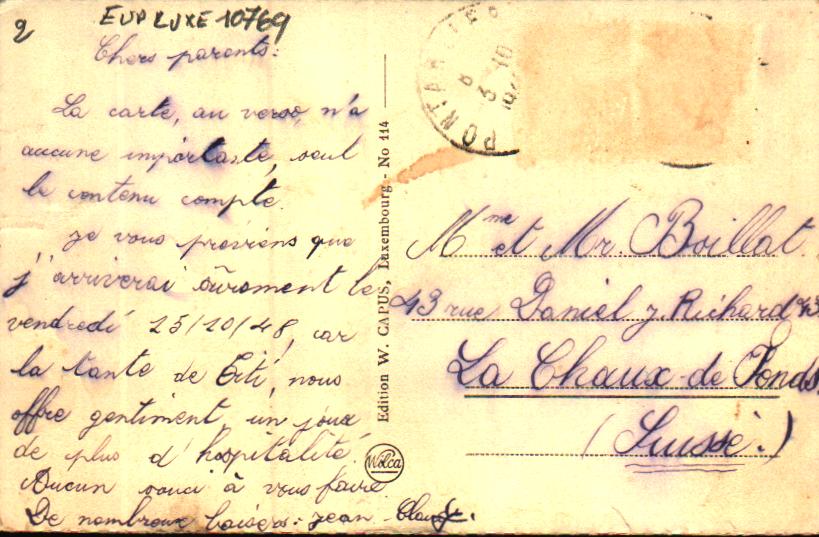 2
EUPLUXE 10769
Chers parents:
La carte, au verso, n'a
aucune importante, seul
le contenu compte.
Je vous préviens que
j'arriverai sûrement le
vendredi 15/10/48, car
la tante de Titi, nous
offre gentiment, un jour
de plus d'hospitalité.
Aucun souci à vous faire
De nombreux baisers: Jean-Claude.
Edition W. CAPUS, Luxembourg - No 114
Wolca
PONTARLIER
8
3-10
Mme et Mr. Boillat.
43 rue Daniel J. Richard 43
La Chaux-de-Fonds.
(Suisse.)